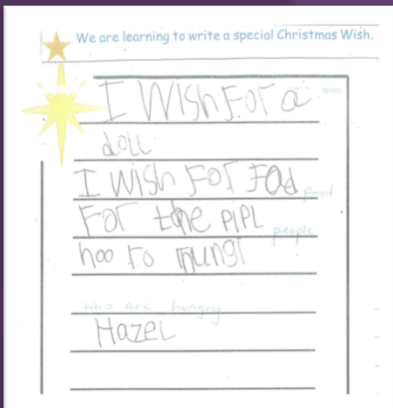 We are learning to write a special Christmas Wish.
I WISh FOr a
doLL
I WISh FOr FOd food
For the PIPL people
hoo ro mungi
who are hungry
Hazel